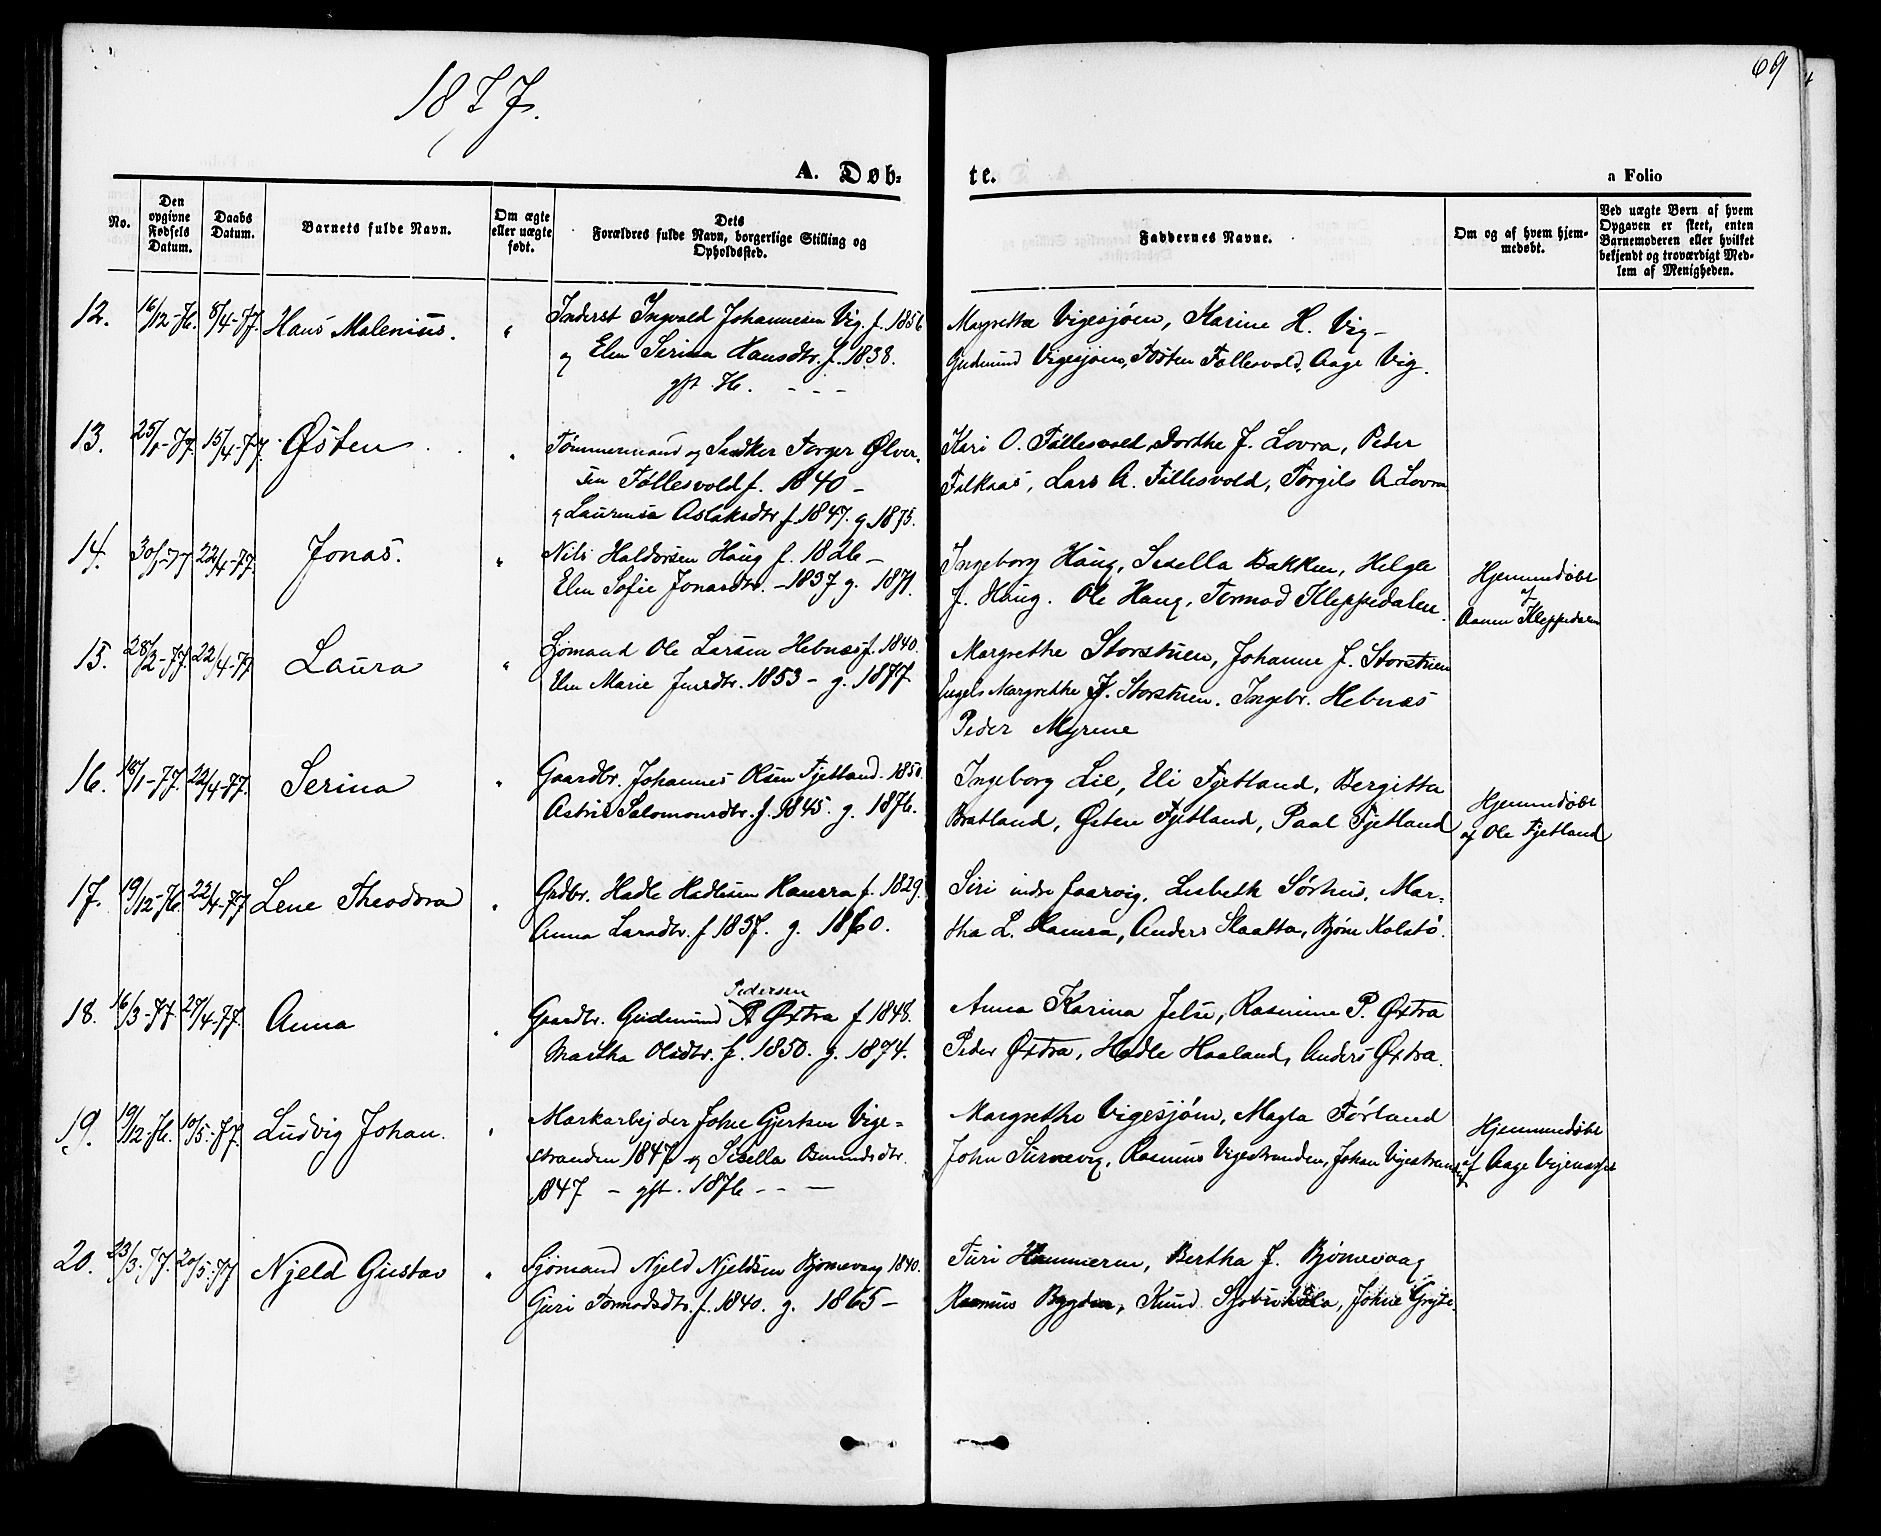 1877.
69
A. Døb-
te.
a Folio
No.
Den opgivne Fødsels Datum.
Daabs Datum.
Barnets fulde Navn.
Om ægte eller uægte født.
Dets Forældres fulde Navn, borgerlige Stilling og Opholdssted.
Faddernes Navne.
Om og af hvem hjemmedøbt.
Ved uægte Børn af hvem Opgaven er skeet, enten Barnemoderen eller hvilket bekjendt og troværdigt Medlem af Menigheden.
12. 16/12-76. 8/4-77. Hans Malenius. "
Inderst Ingvald Johannesen Vig. f. 1856
og Elen Serina Hansdtr. f. 1838.
gft. 76. - - -
Margrethe Vigesjøen, Karine H. Vig-
Gudmund Vigesjøen, Østen Føllesvold, Aage Vig.
13. 25/1-77. 15/4-77. Østen "
Tømmermand og Snedker Torger Ølver-
sen Føllesvold f. 1840 -
og Laurensa Aslaksdtr f 1847. g. 1875.
Kari O. Føllesvold, Dorthe J. Lovra, Peder
Falkaas, Lars A. Føllesvold, Torgils A Lovra
14. 30/1-77 22/4-77. Jonas. "
Nils Haldorsen Haug f. 1826 -
Elen Sofie Jonasdtr. - 1837 g. 1871.
Ingeborg Haug, Sisella Bakken, Helge
J. Haug. Ole Haug, Tormod Kleppedalen.
Hjemmedøbt
af
Aanen Kleppedalen
15. 28/2-77. 22/4-77 Laura "
Sjømand Ole Larsen Hebnes f. 1840.
Elen Marie Jensdtr. 1853 - g. 1877
Margrethe Storstuen, Johanne J. Storstuen
Engels Margrethe J. Storstuen. Ingebr. Hebnes
Peder Myrene
16. 18/1-77. 22/4-77. Serina "
Gaardbr. Johannes Olsen Fjetland. 1850.
Astri Salomonsdtr. f. 1845. g. 1876.
Ingeborg Lie, Eli Fjetland, Bergitta
Bratland, Østen Fjetland, Paal Fjetland
Hjemmedøbt
af Ole Fjetland
17. 19/12-76. 22/4-77 Lene Theodora "
Grdbr. Hadle Hadlesen Hamra f. 1829.
Anna Larsdtr. f 1837. g. 1860.
Siri indre Saavig, Lisbeth Sørhus, Mar-
tha L. Hamra, Anders Slaatta, Bjøn Kolstø.
18. 16/3-77. 27/4-77. Anna "
Pedersen
Gaardbr. Gudmund P. Øxtra f 1848.
Martha Olsdtr. f. 1850. g. 1874.
Anna Karina Jelse, Rasmine P. Øxtra
Peder Øxtra, Hadle Haaland, Anders Øxtra.
19. 19/12-76. 10/5-77. Ludvig Johan. "
Markarbejder John Gjertsen Vige-
stranden 1847 og Sisella Omundsdtr.
1847 - gft. 1876 - -
Margrethe Vigesjøen, Magla Førland
John Survevig, Rasmus Vigestranden, Johan Vigestranden
Hjemmedøbt
af Aage Vigenæsset
20. 23/3-77. 20/5-77 Njeld Gustav "
Sjømand Njeld Njeldsen Bjønevaag 1840.
Guri Tormodsdtr. f. 1840. g. 1865 -
Turi Hammeren, Bertha J. Bjønevaag
Rasmus Bygden, Knud, Johne Gryte.